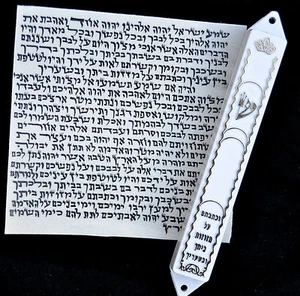 שמע ישראל יהוה אלהינו יהוה אחד ואהבת את
יהוה אלהיך בכל לבבך ובכל נפשך ובכל מאדך והיו
הדברים האלה אשר אנכי מצוך היום על לבבך ושננתם
לבניך ודברת בם בשבתך בביתך ובלכתך בדרך
ובשכבך ובקומך וקשרתם לאות על ידך והיו לטטפת
בין עיניך וכתבתם על מזזות ביתך ובשעריך
והיה אם שמע תשמעו אל מצותי אשר אנכי
מצוה אתכם היום לאהבה את יהוה אלהיכם ולעבדו
בכל לבבכם ובכל נפשכם ונתתי מטר ארצכם בעתו
יורה ומלקוש ואספת דגנך ותירשך ויצהרך ונתתי
עשב בשדך לבהמתך ואכלת ושבעת השמרו לכם
פן יפתה לבבכם וסרתם ועבדתם אלהים אחרים
והשתחויתם להם וחרה אף יהוה בכם ועצר את
השמים ולא יהיה מטר והאדמה לא תתן את יבולה
ואבדתם מהרה מעל הארץ הטבה אשר יהוה נתן לכם
ושמתם את דברי אלה על לבבכם ועל נפשכם וקשרתם
אתם לאות על ידכם והיו לטוטפת בין עיניכם ולמדתם
אתם את בניכם לדבר בם בשבתך בביתך ובלכתך
בדרך ובשכבך ובקומך וכתבתם על מזוזות ביתך
ובשעריך למען ירבו ימיכם וימי בניכם על האדמה
אשר נשבע יהוה לאבתיכם לתת להם כימי השמים
על הארץ
ש
וכתבתם
על
מזוזות
ביתך
ובשעריך